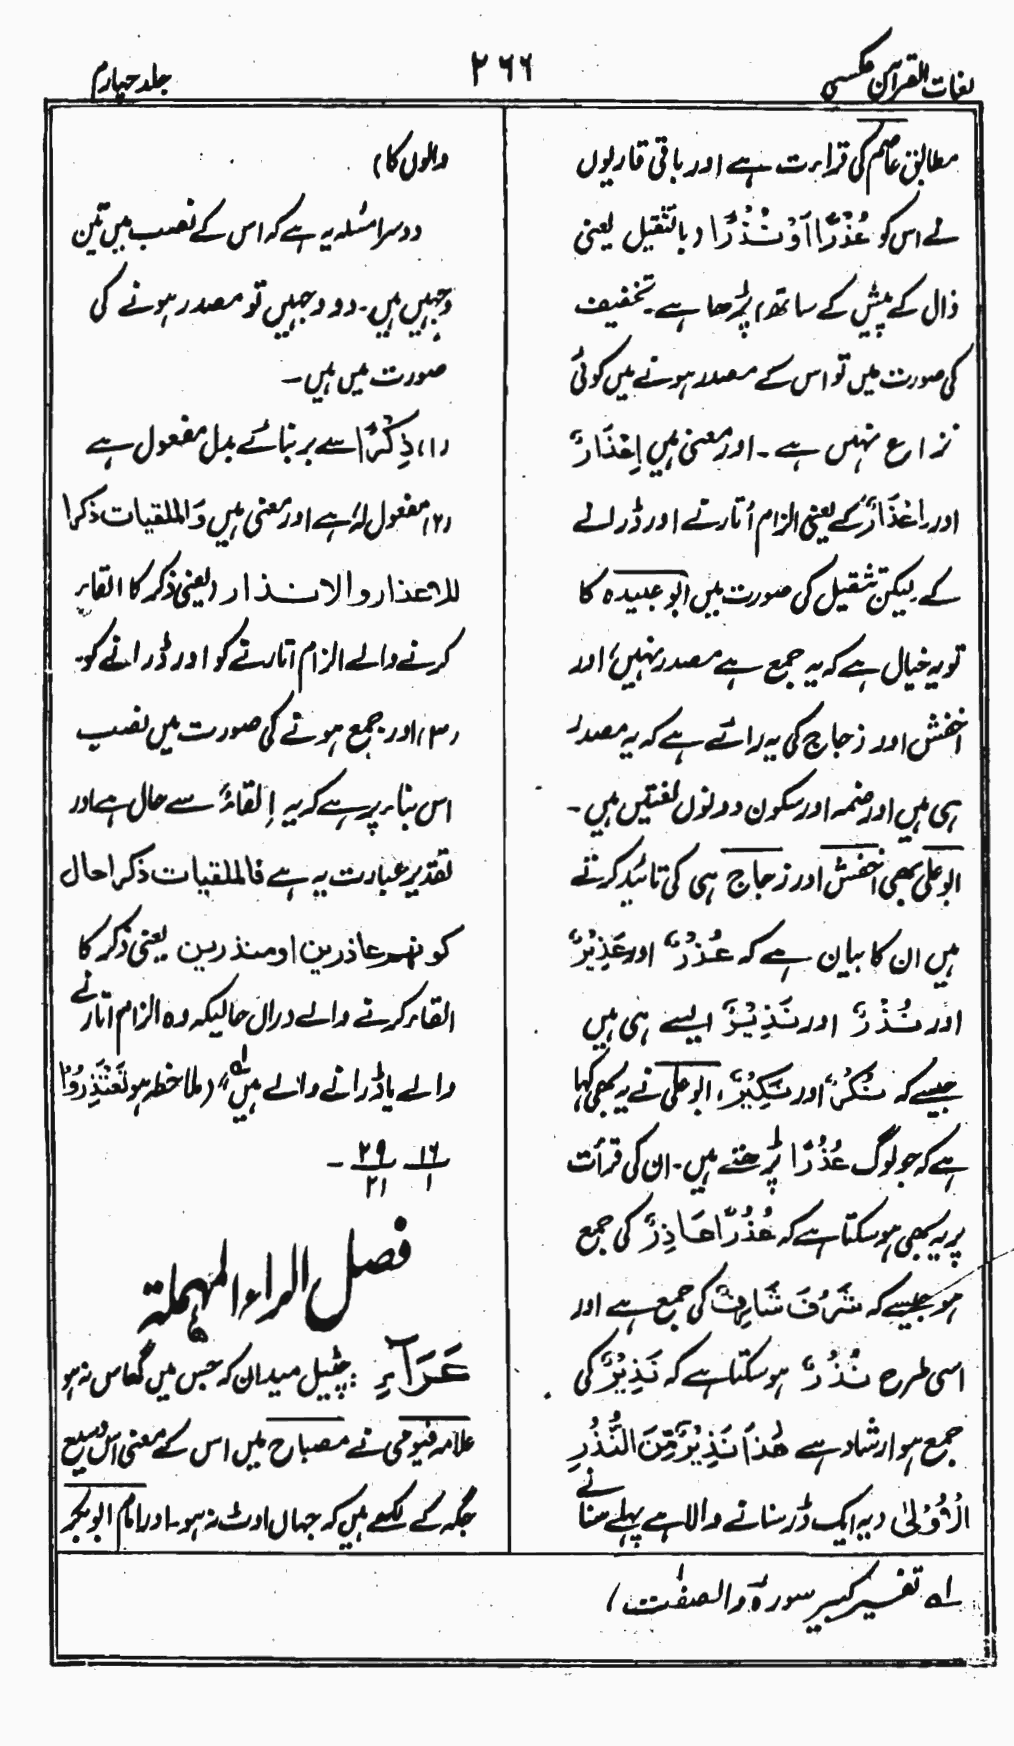 لغات القرآن عکسی
۲۶۶
جلد چہارم
مطابق عاصم کی قراءت ہے اور باقی قاریوں
نے اس کو عُذُرًا اَوْ نُذُرًا (بالتثقیل یعنی
ذال کے پیش کے ساتھ) پڑھا ہے۔ تخفیف
کی صورت میں تو اس کے مصدر ہونے میں کوئی
نزاع نہیں ہے۔ اور معنی ہیں اِعْذَارٌ
اور اِعْذَارٌ کے یعنی الزام اُتارنے اور ڈرانے
کے لیکن تثقیل کی صورت میں ابو عبیدہ کا
تو یہ خیال ہے کہ یہ جمع ہے مصدر نہیں، اور
اخفش اور زجاج کی یہ رائے ہے کہ یہ مصدر
ہی ہیں اور ضمہ اور سکون دونوں لغتیں ہیں۔
ابو علی بھی اخفش اور زجاج ہی کی تائید کرتے
ہیں ان کا بیان ہے کہ عُذُرٌ اور عَذِیْرٌ
اور نُذُرٌ اور نَذِیْرٌ ایسے ہی ہیں
جیسے کہ نُکُرٌ اور نَکِیْرٌ، ابو علی نے یہ بھی کہا
ہے کہ جو لوگ عُذُرًا پڑھتے ہیں۔ ان کی قرأت
پر یہ بھی ہو سکتا ہے کہ عُذُرًا عَاذِرٌ کی جمع
ہو جیسے کہ شَرُفَ شَارِفٌ کی جمع ہے اور
اسی طرح نُذُرٌ ہو سکتا ہے کہ نَذِیْرٌ کی
جمع ہو ارشاد ہے ھٰذَا نَذِیْرٌ مِّنَ النُّذُرِ
الْاُوْلٰی (یہ ایک ڈر سنانے والا ہے پہلے سنانے
والوں کا)
دوسرا مسئلہ یہ ہے کہ اس کے نصب میں تین
وجہیں ہیں۔ دو وجہیں تو مصدر ہونے کی
صورت میں ہیں۔
(۱) ذِکْرًا سے بر بنائے بدل مفعول ہے
(۲) مفعول لہٗ ہے اور معنی ہیں وَالملقیات ذکرا
للاعذار والانذار (یعنی ذکر کا القاء
کرنے والے الزام اتارنے کو اور ڈرانے کو۔
(۳) اور جمع ہونے کی صورت میں نصب
اس بناء پر ہے کہ یہ اِلقاءٌ سے حال ہے اور
تقدیر عبارت یہ ہے فالملقیات ذکرا حال
کونہم عاذرین اومنذرین یعنی ذکر کا
القاء کرنے والے درآں حالیکہ وہ الزام اتارنے
والے یا ڈرانے والے ہیں" لہ (ملاحظہ ہو تَعْتَذِرُوْا)
۱۶/۱ ۲۹/۲۱ -
فصل الراء المہملة
عَرَآءِ: چٹیل میدان کہ جس میں گھاس نہ ہو
علامہ فیومی نے مصباح میں اس کے معنی اس وسیع
جگہ کے لکھے ہیں کہ جہاں اوٹ نہ ہو۔ اور امام ابو بکر
لہ تفسیر کبیر سورہ والصفٰت)